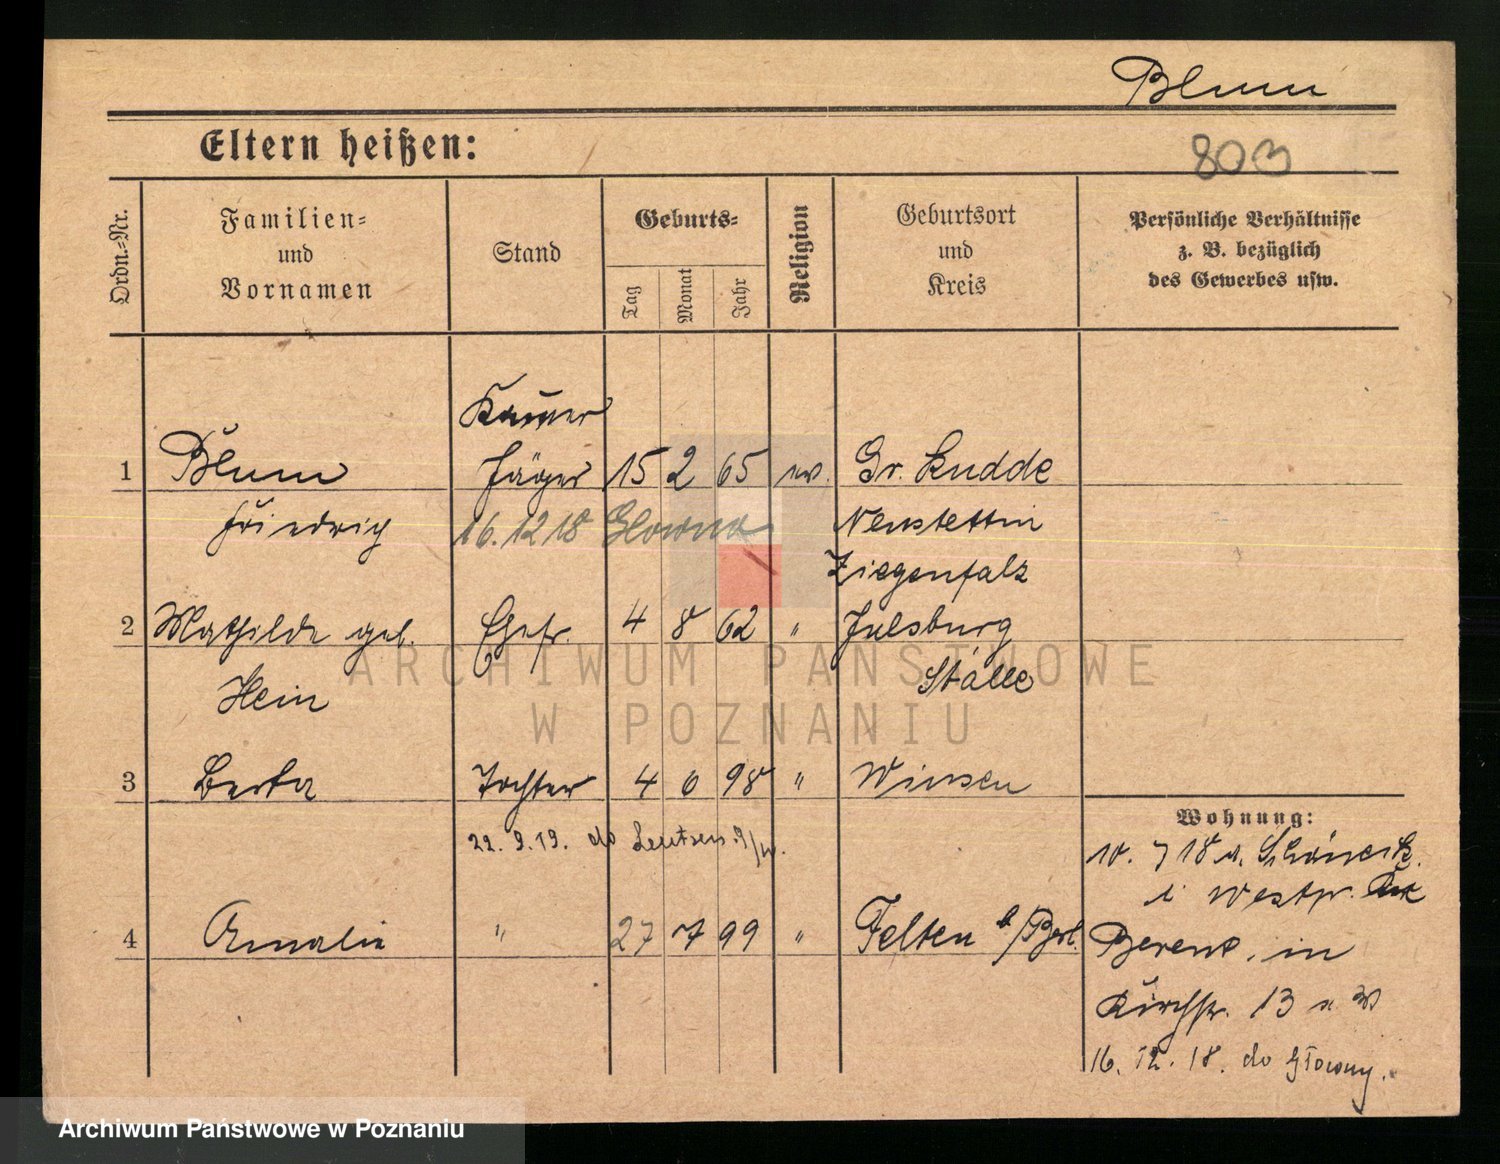 Blum
Eltern heißen:
803
Ordn.=Nr.
Familien=
und
Vornamen
Stand
Geburts=
Tag
Monat
Jahr
Religion
Geburtsort
und
Kreis
Persönliche Verhältnisse
z. B. bezüglich
des Gewerbes usw.
1 Blum Jäger 15 2 65 ev. Gr. Kudde
Friedrich 16.12.18 Glowno Neustettin
Ziegenfalz
2 Mathilde geb. Ehefr. 4 8 62 " Julsburg
Hein
3 Berta Tochter 4 6 98 " Winsen
22. 9. 19. do
4 Amalie " 27 7 99 " Felten b/Berl.
Wohnung:
10. 7 18 v. Schöneck
i Westpr.
Berent, in
Kirchstr. 13 a W
16. 12. 18. do Główny.
ARCHIWUM PAŃSTWOWE
W POZNANIU
Archiwum Państwowe w Poznaniu